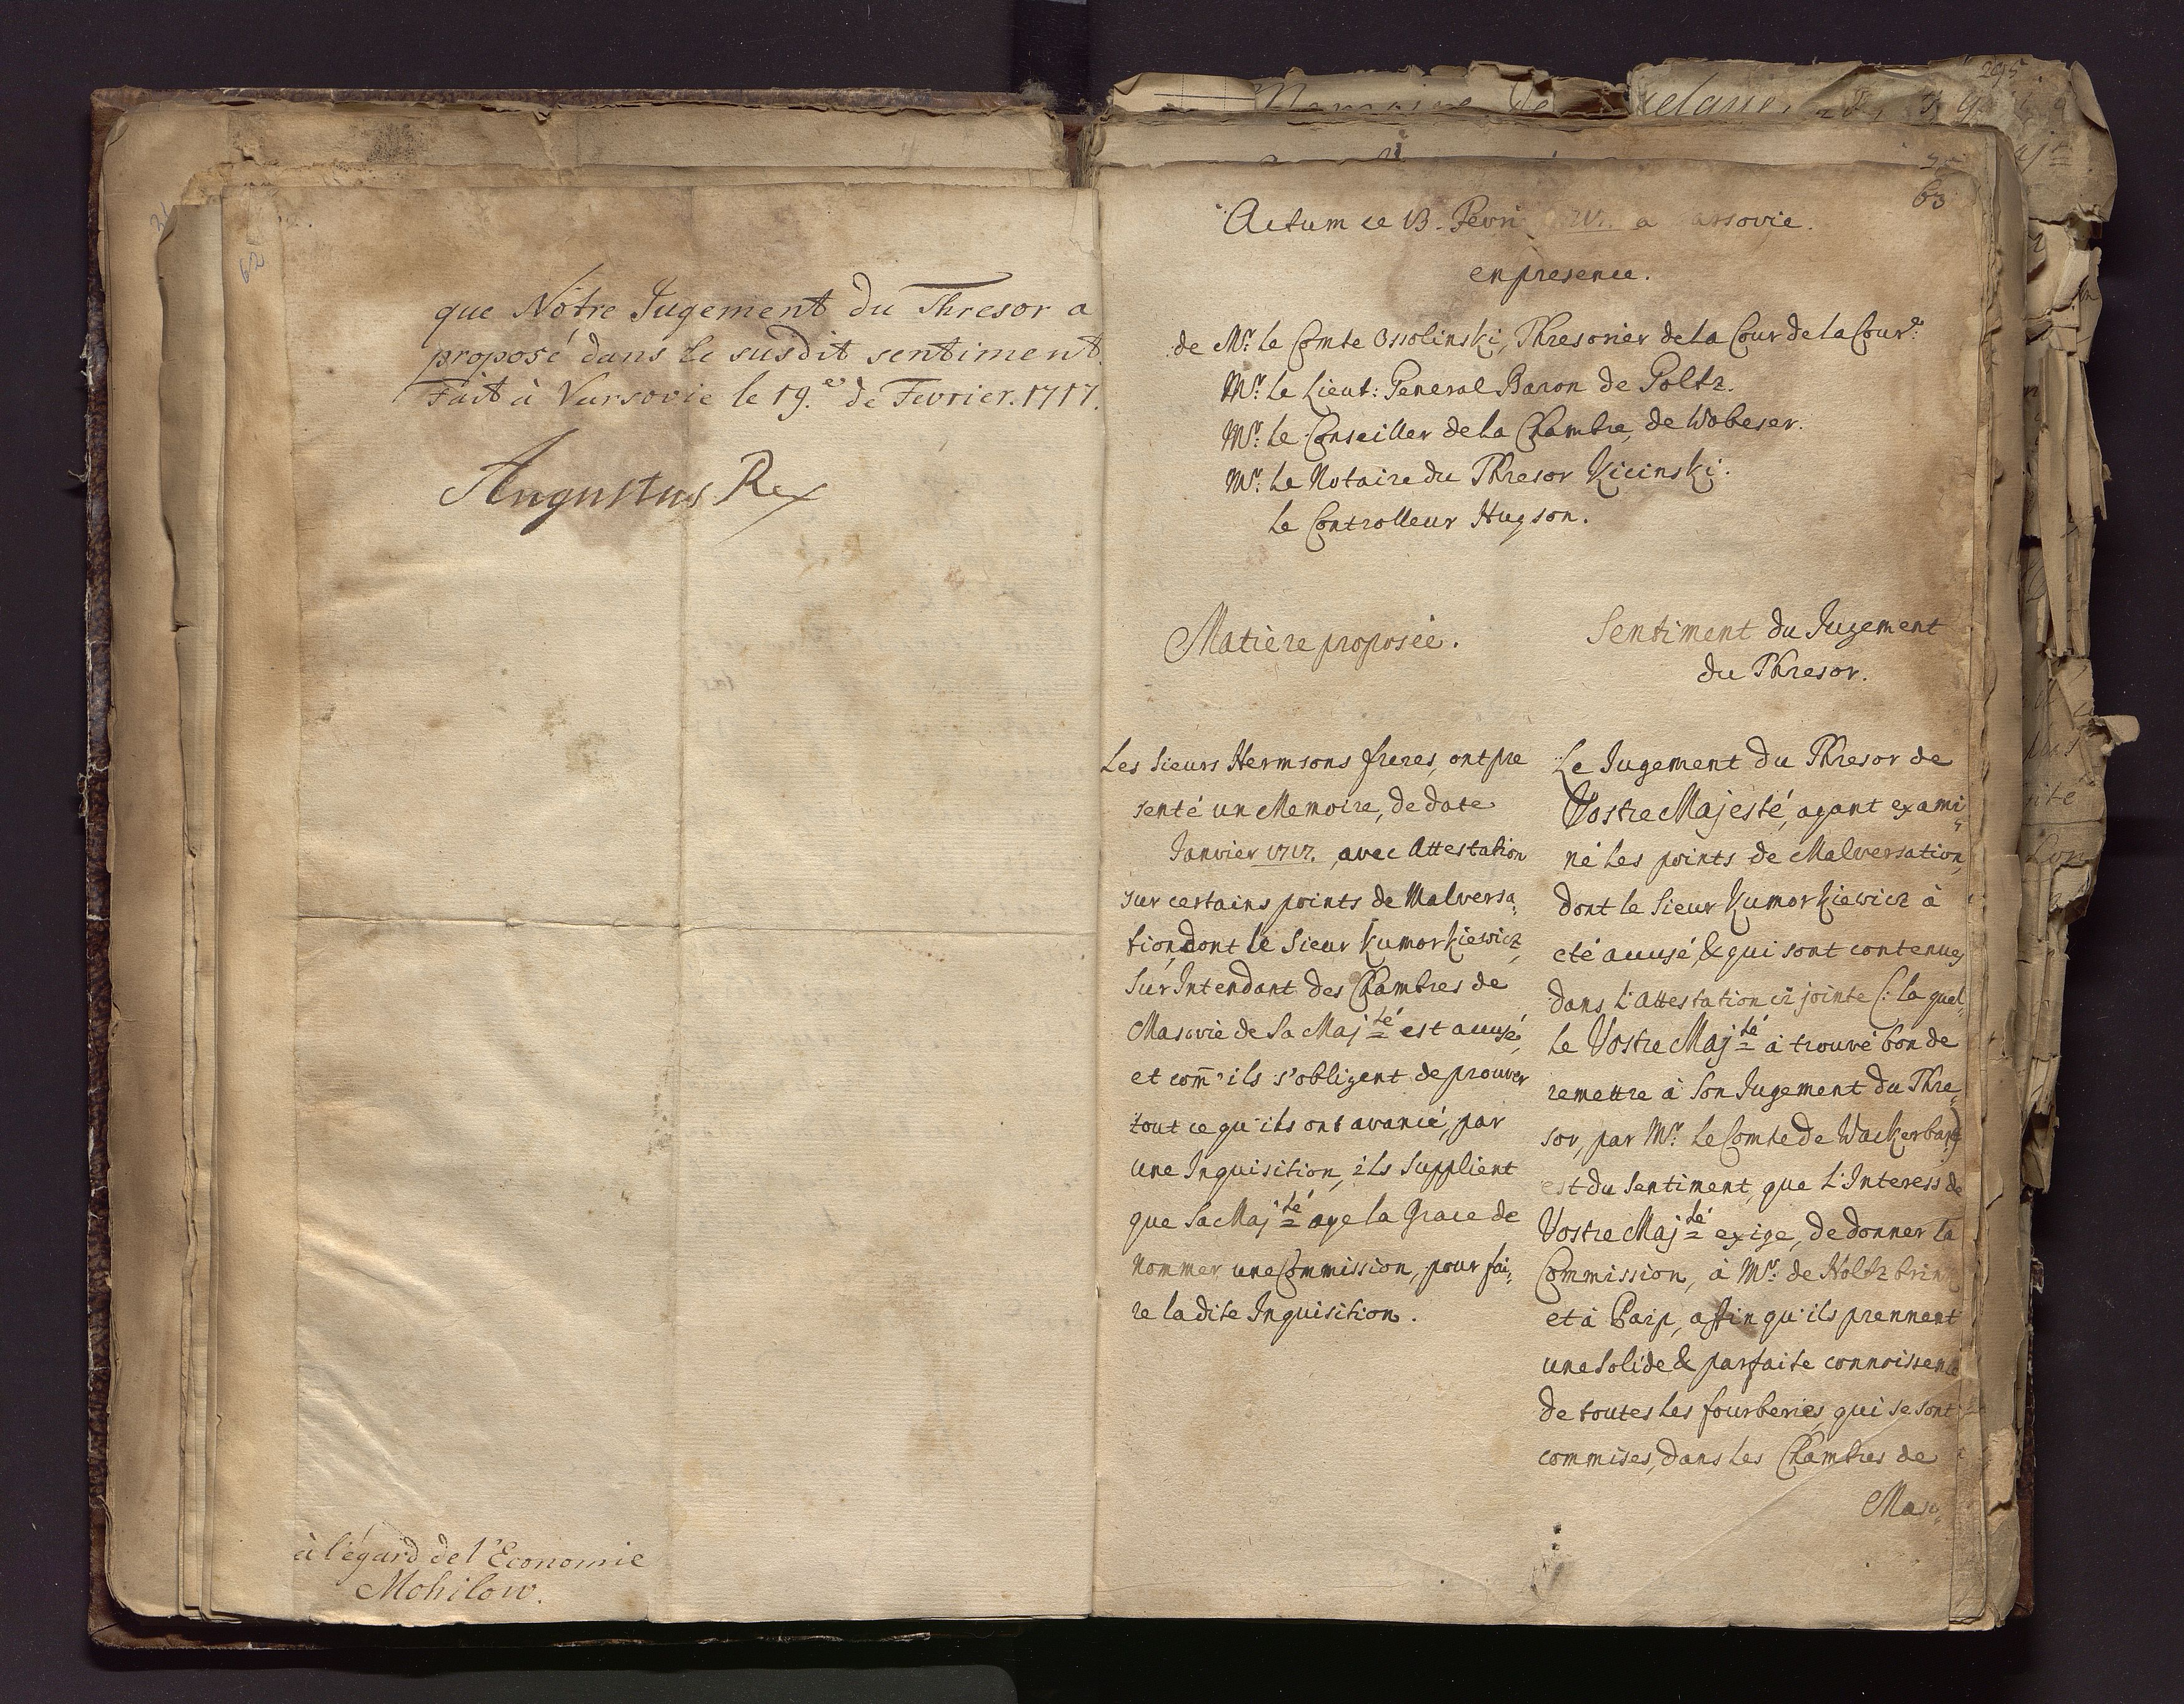 que Nôtre Jugement du Thresor a
proposé dans le susdit sentiment.
Fait à Varsovie le 19.e de Fevrier. 1717.
Augustus Rex
à l'égard de l'Economie
Mohilow.
63
Actum ce 13. Fevri a arsovie.
en presence.
de Mr. le Comte Ossolinski, Thresorier de la Cour de la Cour.e
Mr. le Lieut: General Baron de Goltz.
Mr. le Conseiller de la Chambre, de Wobeser.
Mr. le Notaire du Thresor Kicinski.
le Controlleur Hugson.
Matiere proposée.
Les Sieurs Hermsons freres, ont pre
senté un Memoire, de date
Janvier 1717. avec Attestation
sur certains points de Malversa,
tion, dont le Sieur Kumorkiewicz,
Sur Intendant des Chambres de
Masovie de Sa Maj.té est accusé,
et com̄'ils s'obligent de prouver
tout ce qu'ils ont avancé, par
une Inquisition, ils Supplient
que Sa Maj.té aye la Grace de
nommer une Commission, pour fai,
re la dite Inquisition.
Sentiment du Jugement
du Thresor.
Le Jugement du Thresor de
Vostre Majesté, ayant exami
né les points de Malversation,
dont le Sieur Kumorkiewicz à
eté accusé, & qui sont contenus
dans l'Attestation ci jointe (: la quel,
le Vostre Maj.té à trouvé bon de
remettre à Son Jugement du Thre,
sor, par Mr. le Comte de Wackerbart)
est du Sentiment, que l'Interess de
Vostre Maj.té exige, de donner la
Commission, à Mr. de
et à Paip, affin qu'ils prennent
une solide & parfaite connoissence
de toutes les fourberies, qui se sont
commises, dans les Chambres de
Maso,